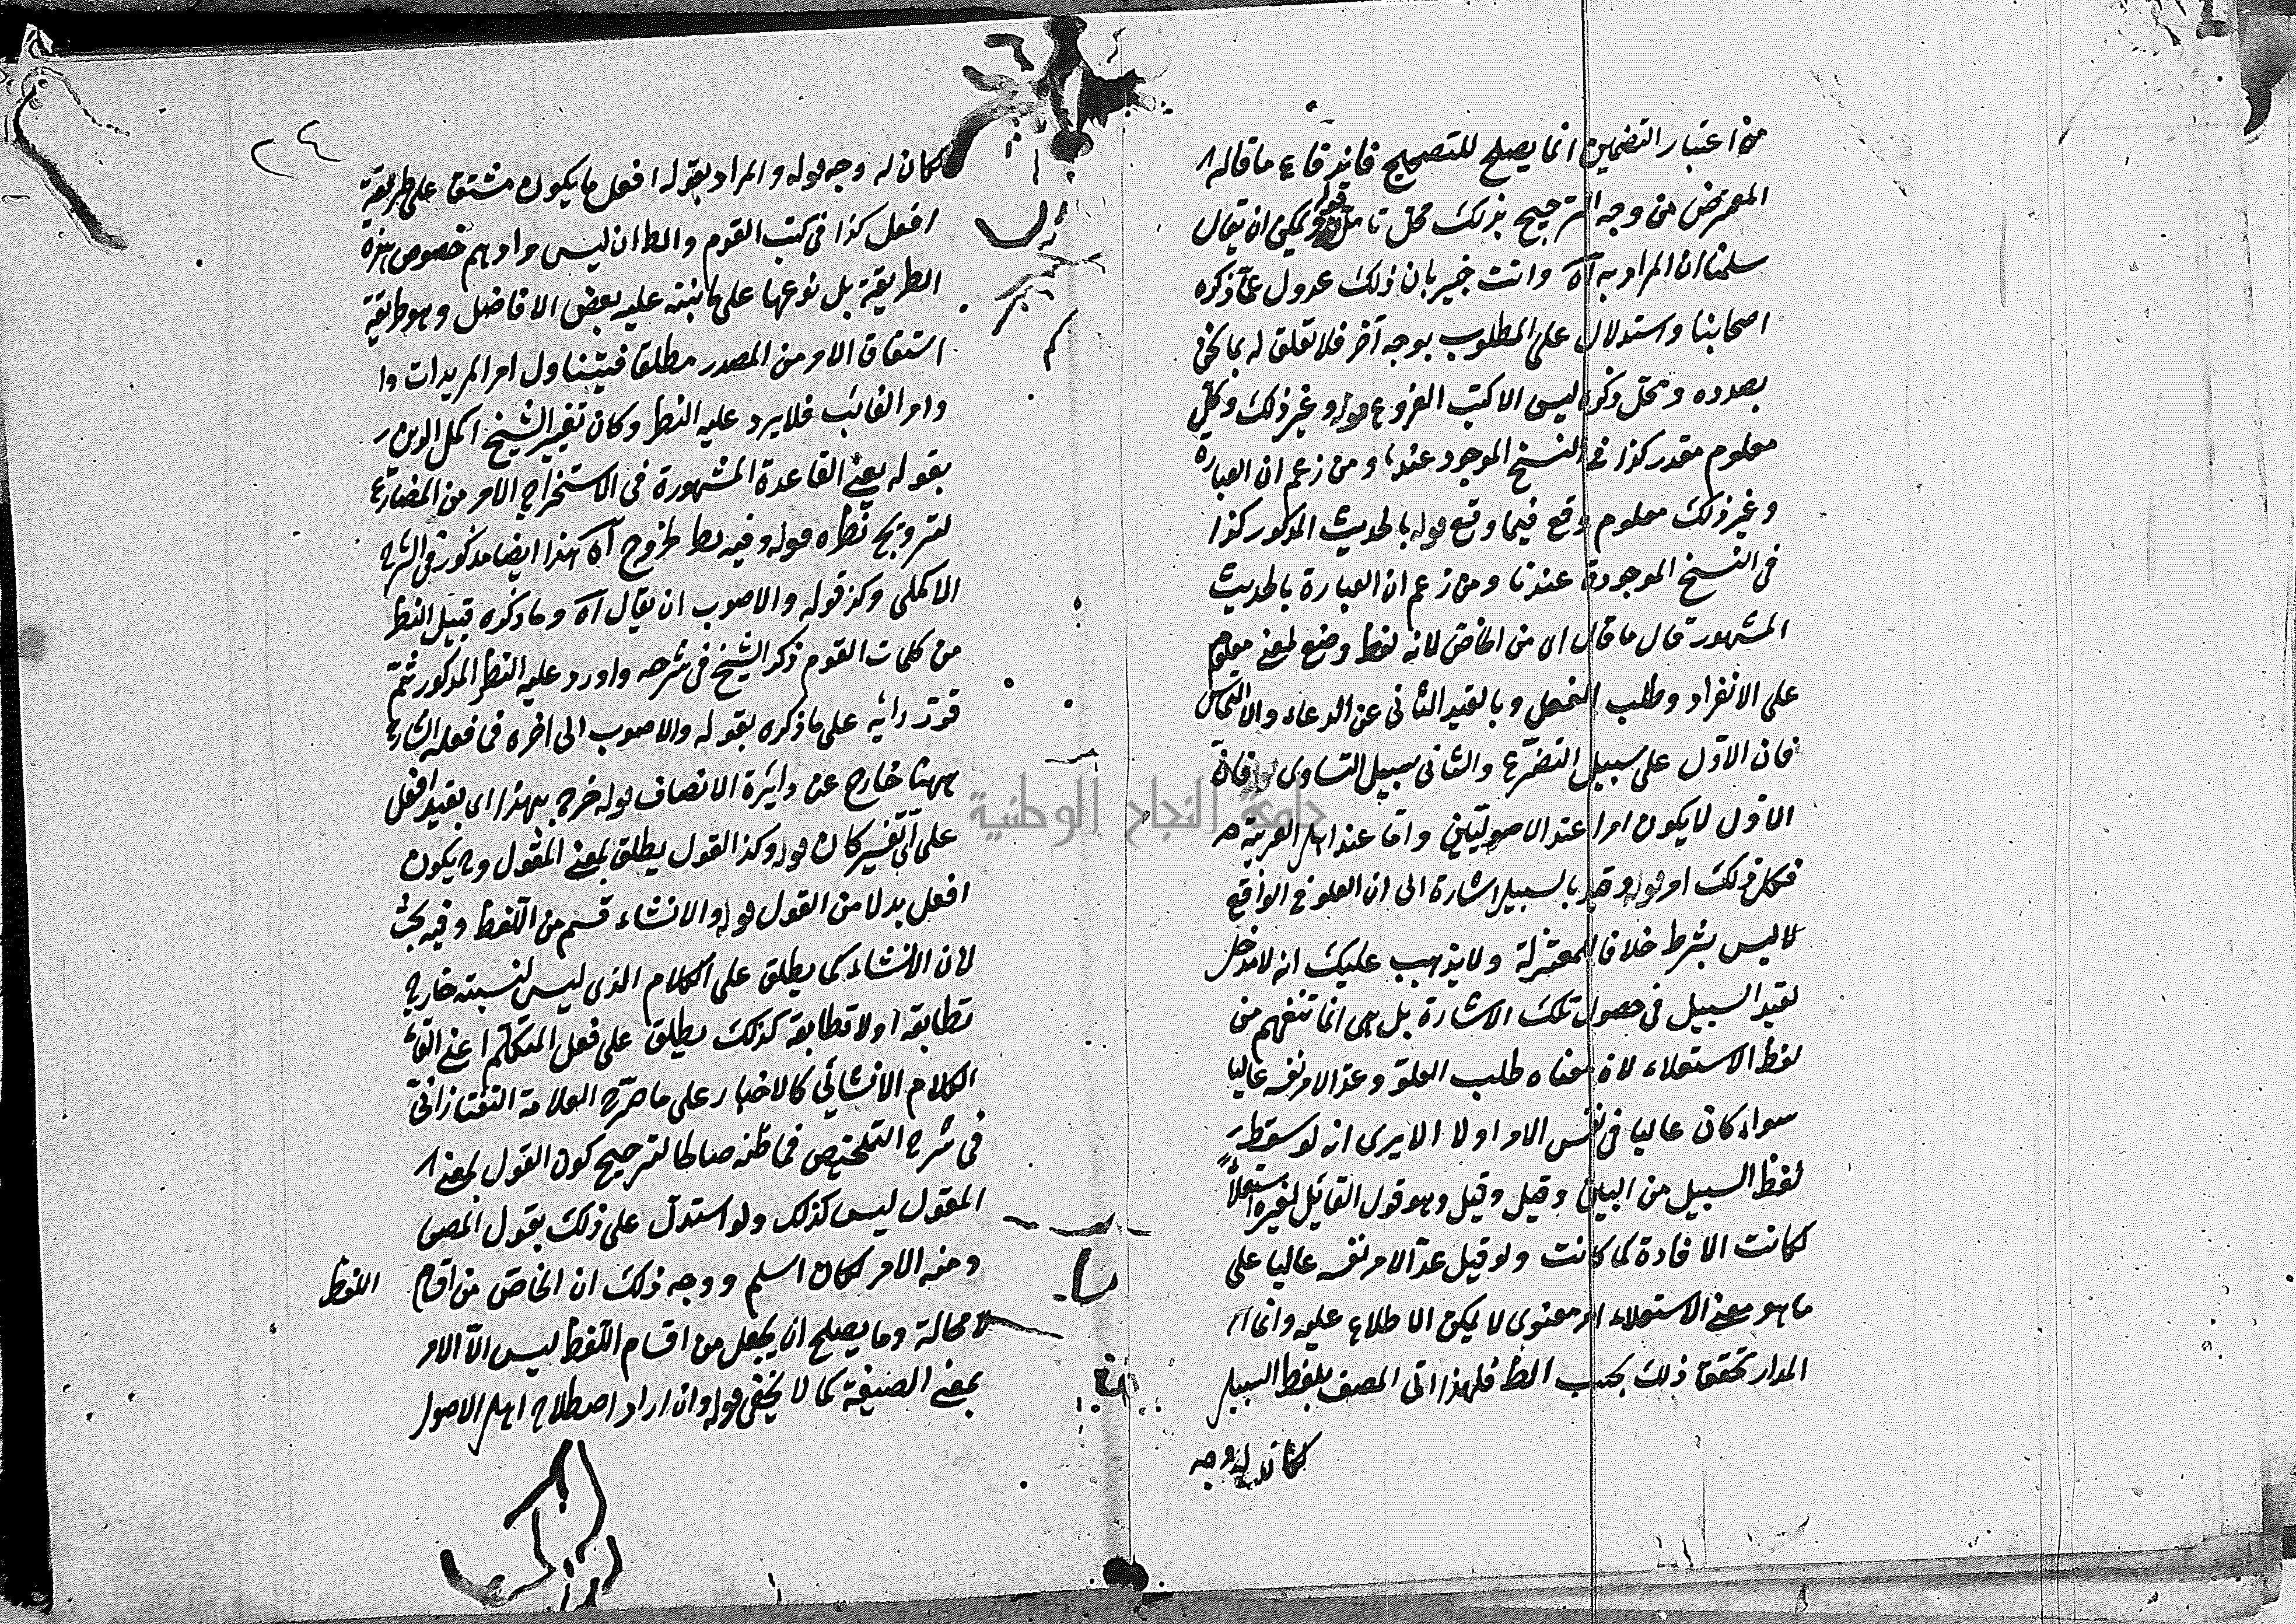 من اعتبار التضمين انما يصلح للتصحيح فاندفاع ما قاله
المعترض من وجه الترجيح بذلك محل تامل قوله ويمكن ان يقال
سلمنا ان المراد به آه وانت خبير بان ذلك عدول عما ذكره
اصحابنا واستدلال على المطلوب بوجه آخر فلا تعلق له بما نحن
بصدده ومحل ذكره ليس الا كتب الفروع قوله وغير ذلك وكل
معلوم مقدر كذا في النسخ الموجود عندنا ومن زعم ان العبارة
وغير ذلك معلوم وقع فيما وقع قوله بالحديث المذكور كذا
في النسخ الموجودة عندنا ومن زعم ان العبارة بالحديث
المشهور قال ما قال اى من الخاص لانه لفظ وضع لمعنى معلوم
على الانفراد وطلب الفعل وبالقيد الثانى عن الدعاء والالتماس
فان الاول على سبيل التضرع والثانى سبيل التساوى قوله فان
الاول لا يكون امرا عند الاصوليين واما عند اهل العربية
فكل ذلك امر قوله وقيد بالسبيل اشارة الى ان العلو في الواقع
لا ليس بشرط خلافا للمعتزلة ولا يذهب عليك انه لا مدخل
لقيد السبيل في حصول تلك الاشارة بل هى انما تنفهم من
لفظ الاستعلاء لان معناه طلب العلو وعد الامر نفسه عاليا
سواء كان عاليا في نفس الامر او لا الا يرى انه لو سقط
لفظ السبيل من البين وقيل وقيل وهو قول القائل لغيره استعلاء
لكانت الافادة كما كانت ولو قيل عد الامر نفسه عاليا على
ما هو معنى الاستعلاء امر معنوى لا يمكن الاطلاع عليه وانما
المدار تحقق ذلك بحسب الظ فلهذا اتى المصنف بلفظ السبيل
لكان له وجه
٢٤
لكان له وجه قوله والمراد بقوله افعل ما يكون مشتقا على طريقة
افعل كذا في كتب القوم والظ ان ليس مرادهم خصوص هذه
الطريقة بل نوعها على ما نبه عليه بعض الافاضل وهو طريقة
اشتقاق الامر من المصدر مطلقا فيتناول امر المزيدات وا
وامر الغائب فلا يرد عليه النظر وكان تفسير الشيخ اكمل الدين
بقوله يعنى القاعدة المشهورة في الاستخراج الامر من المضارع
لترويج نظره قوله وفيه نظر لخروج آه هذا ايضا مذكور في الشرح
الاكملى وكذ قوله والاصوب ان يقال آه وما ذكره قبيل النظر
من كلمات القوم ذكر الشيخ في شرحه واورد عليه النظر المذكور ثم
قوى رايه على ما ذكره بقوله والاصوب الى اخره فما فعله الشارح
ههنا خارج عن دائرة الانصاف قوله خرج بهذا اى بقيد افعل
على اى تفسير كان قوله وكذا القول يطلق بمعنى المقول وح يكون
افعل بدلا من القول قوله والانشاء قسم من اللفظ وفيه بحث
لان الانشاء كما يطلق على الكلام الذى ليس لنسبته خارج
تطابقه او لا تطابقه كذلك يطلق على فعل المتكلم اعنى القاء
الكلام الانشائي كالاخبار على ما صرح العلامة التفتازانى
في شرح التلخيص فما ظنه صالحا لترجيح كون القول بمعنى
المقول ليس كذلك ولو استدل على ذلك بقول المص
ومنه الامر لكان اسلم ووجه ذلك ان الخاص من اقسام اللفظ
لا محالة وما يصلح ان يجعل من اقسام اللفظ ليس الا الامر
بمعنى الصيغة كما لا يخفى قوله وان اراد اصطلاح اهل الاصول
جامعة النجاح الوطنية